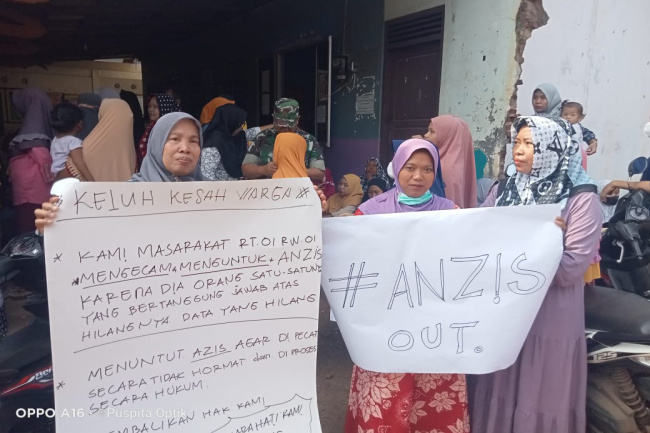 # KELUH KESAH WARGA #
* KAMI MASARAKAT RT.01 RW.01
MENGECAM & MENGUNTUK * ANZIS
KARENA DIA ORANG SATU-SATUNY
YANG BERTANGGUNG JAWAB ATAS
HILANGNYA DATA YANG HILANG
* MENUNTUT AZIS AGAR DI PECAT
SECARA TIDAK HORMAT dan DI PROSES
SECARA HUKUM.
KEMBALIKAN HAK KAMI
KAMI
# ANZIS
OUT.
OPPO A16 Puspita Optik